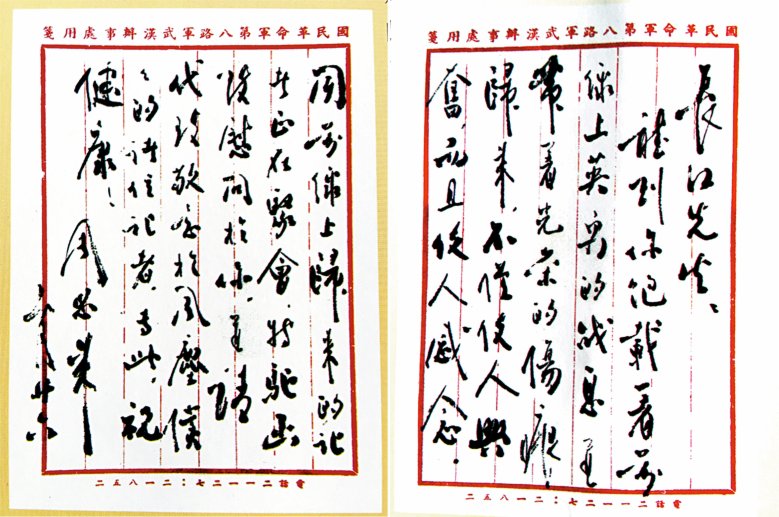 國民革命軍第八路軍武漢辦事處用箋
長江先生、
聽到你飽載着前
線上英勇的战息,並
帶着光荣的傷痕
歸来,不僅使人興
奮,而且使人感念.
電話二一一二七：二一八五二
國民革命軍第八路軍武漢辦事處用箋
聞前線上歸来的記
者正在聚會,特馳函
致慰問於你,並請
代致敬意於風塵僕
々的諸位記者.專此.祝
健康!
周恩来
六月廿六
電話二一一二七：二一八五二